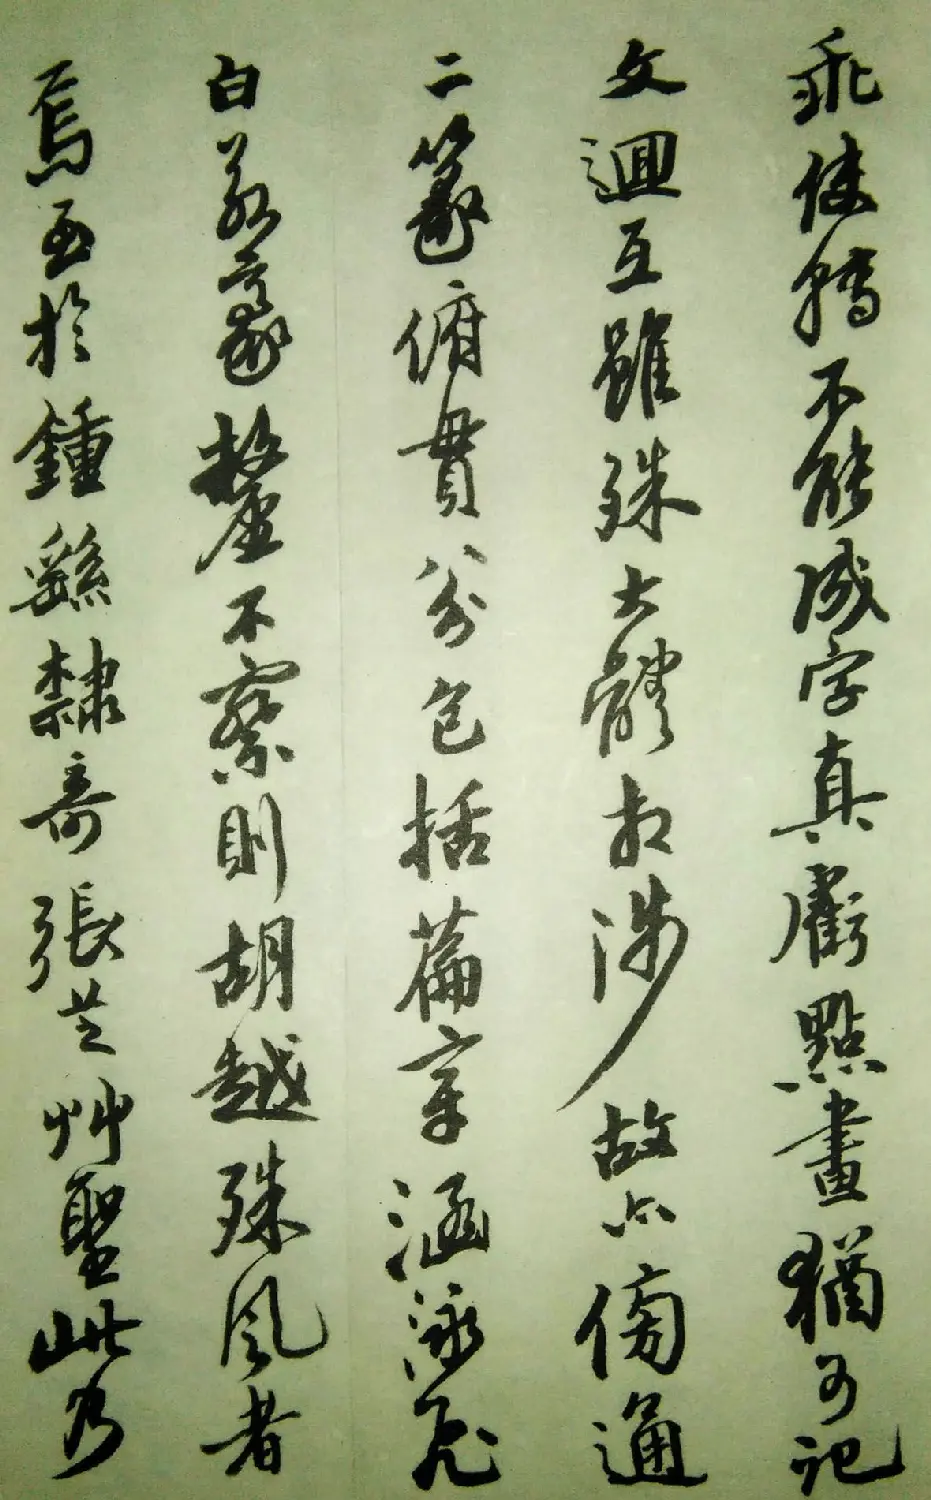 乖使轉不能成字真虧點畫猶可記
文迴互雖殊大體相涉故亦傍通
二篆俯貫八分包括篇章涵泳飛
白若豪釐不察則胡越殊風者
焉至於鍾繇隸奇張芝艸聖此乃